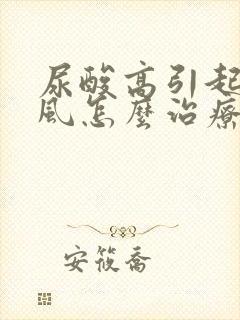 尿酸高引起
風怎麼治療
安筱喬